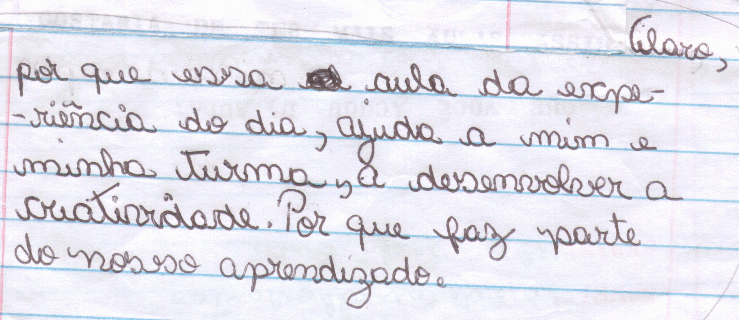 Claro,
por que essa aula da expe-
-riência do dia, ajuda a mim e
minha turma, a desenvolver a
criatividade. Por que faz parte
do nosso aprendizado.